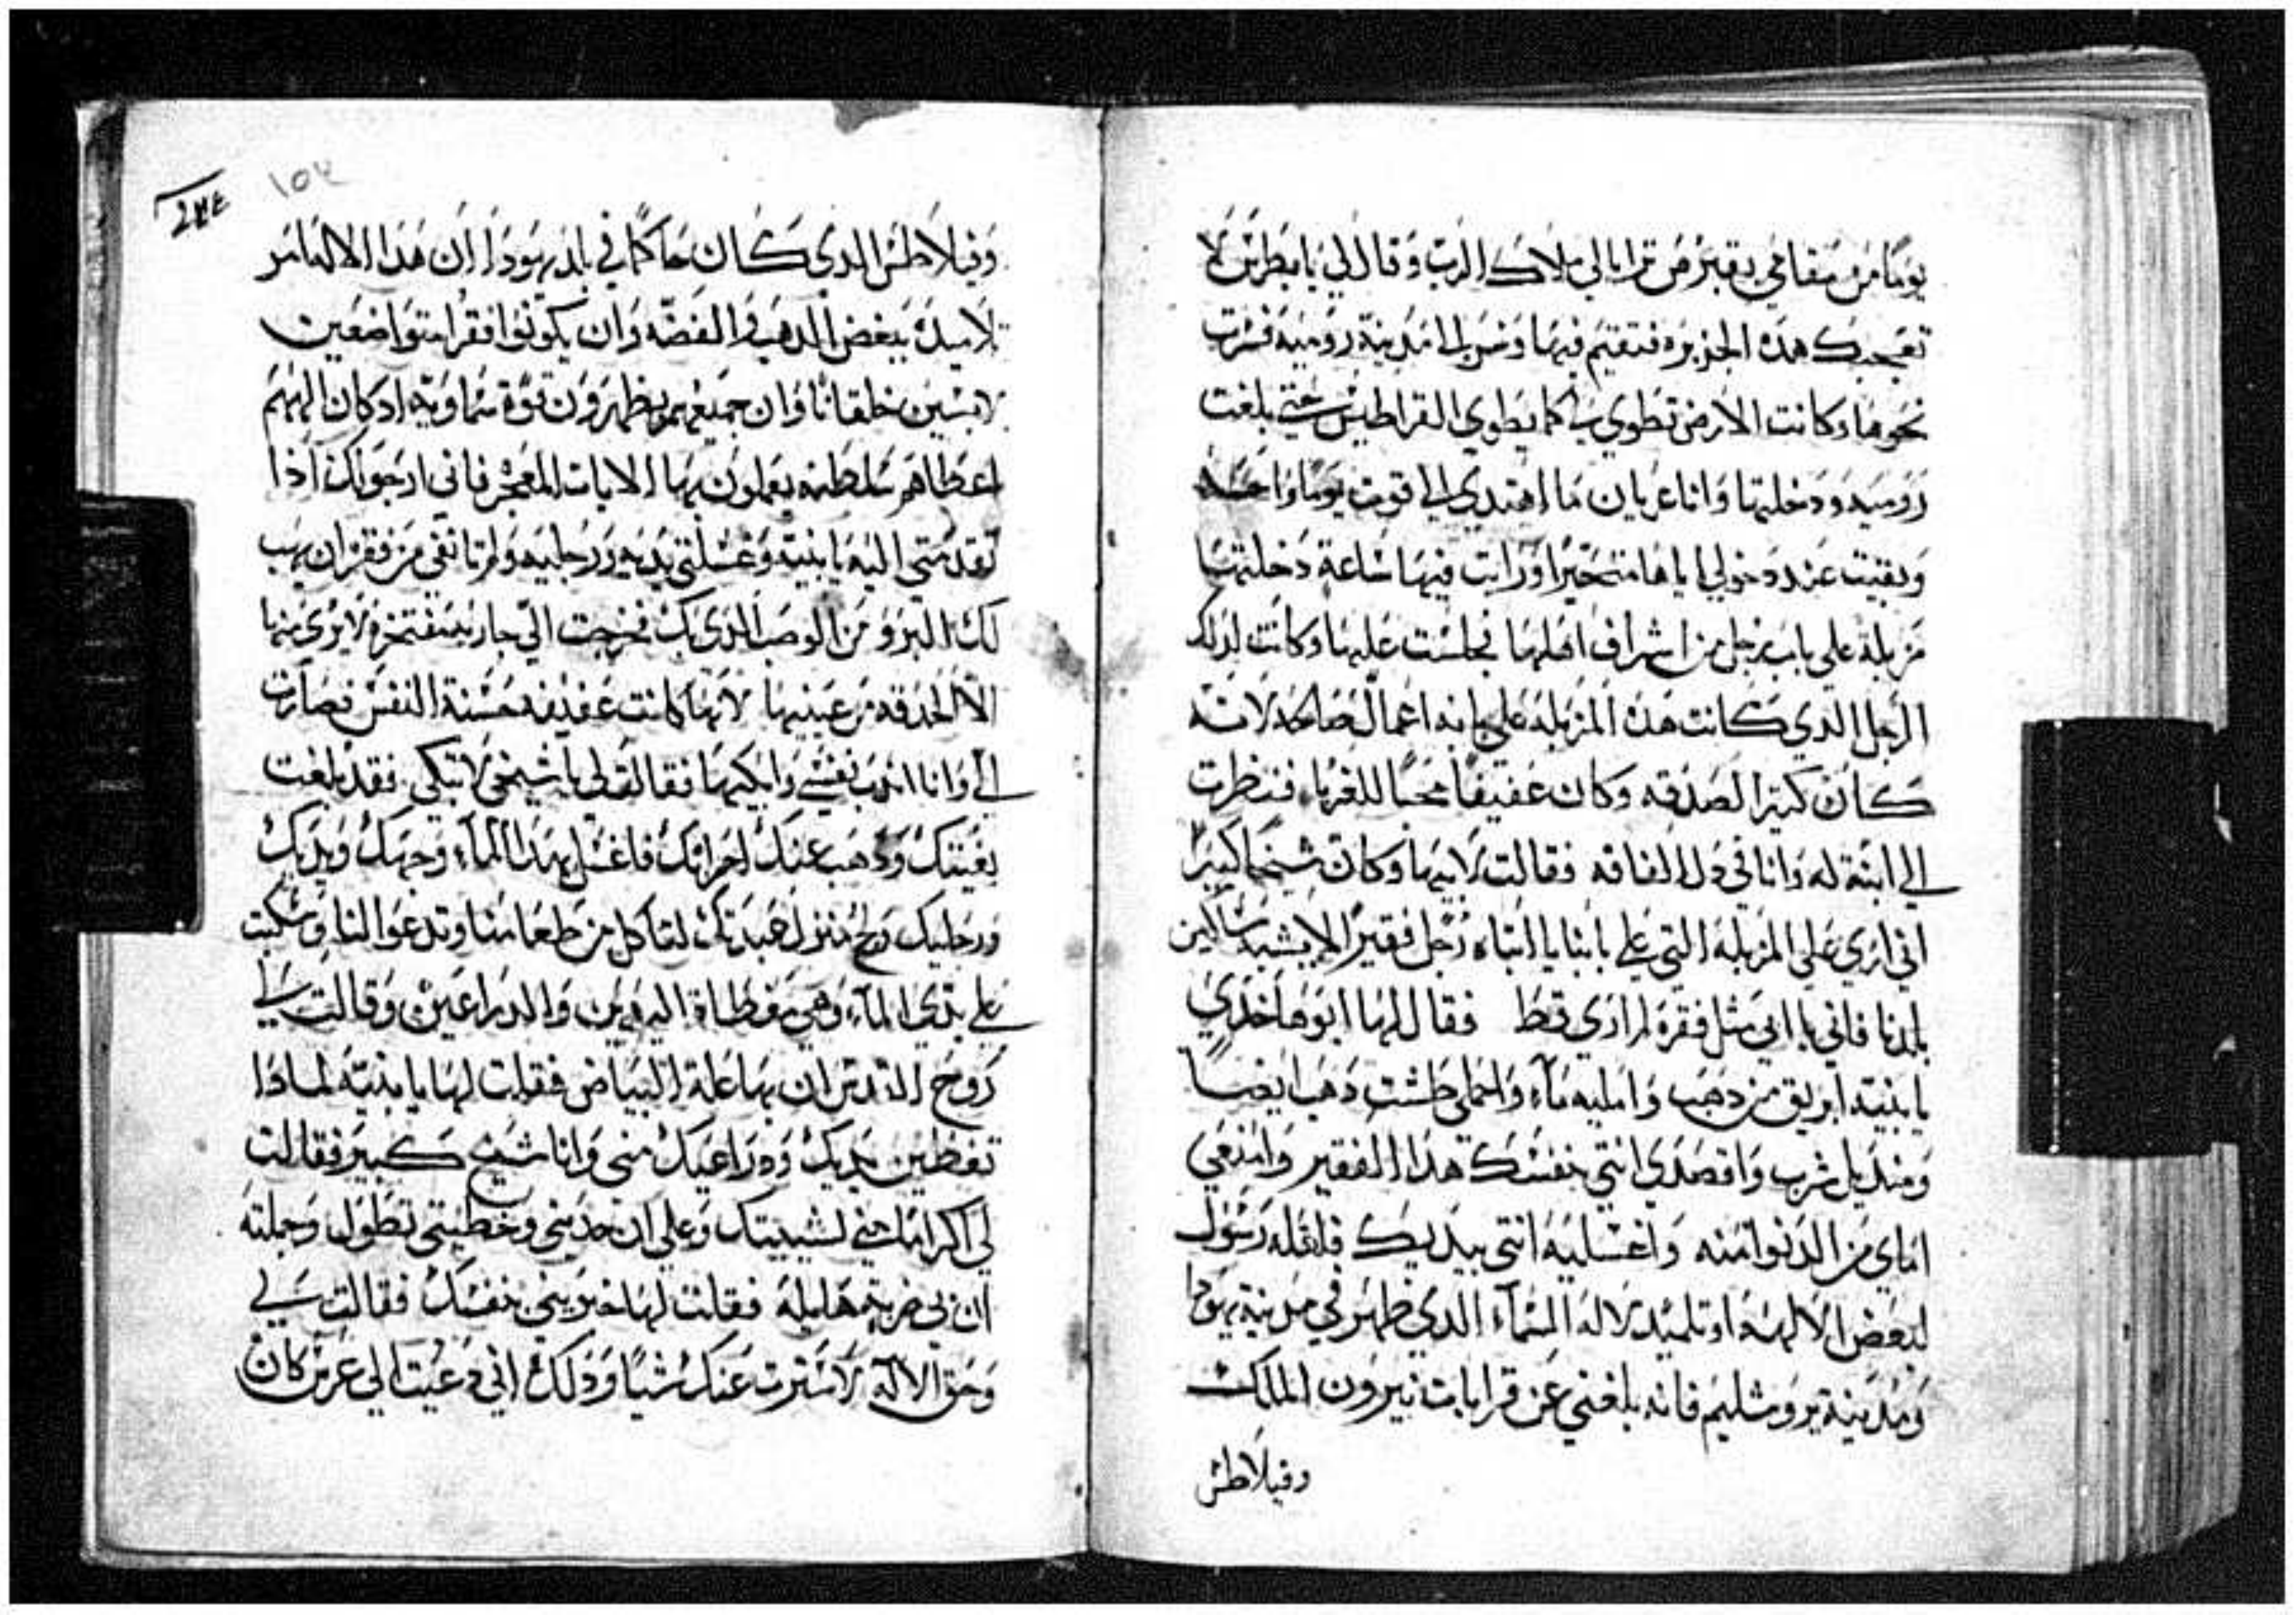 يومًا من مقامي بقبرس ترايا لي ملاك الرب وقال لي يا بطرس لا
تعجبك هذه الجزيره فتقيم فيها وسر الى مدينة روميه فسرت
نحوها وكانت الارض تطوي بي كما يطوي القراطيس حتى بلغت
روميه ودخلتها وانا عريان ما اهتدي الى قوت يومًا واحدًا
وبقيت عند دخولي اياها متحيرًا ورايت فيها ساعة دخلتها
مزبلة على باب رجل من اشراف اهلها فجلست عليها وكانت لذلك
الرجل الدي كانت هده المزبلة على بابه اعمال صالحه لانه
كان كتير الصدقه وكان عفيفًا محبًا للغربا فنظرت
الى ابنة له وانا في دل الفاقه فقالت لابيها وكان شيخًا كبيرًا
اني اري على المزبلة التي على بابنا يا ابتاه رجل فقيرًا لا يشبه ساكين
بلدنا فاني يا ابي مثل فقره لم اري قط فقال لها ابوها خدي
يا بنيه ابريق من دهب وامليه ماء واحملي طشت دهب ايضًا
ومنديل شرب واقصدي انتي بنفسك هدا الفقير وامنعي
اماي من الدنوا منه واغسليه انتي بيديك فلعله رسول
لبعض الالهه او تلميد لاله السماء الدي ظهر في مدينة يهودا
ومدينة يروشليم فانه بلغني عن قرابات نيرون الملك
وفيلاطس
١٥٧
وفيلاطس الدي كان حاكمًا في بلد يهودا ان هدا الاله امر
تلاميده ببغض الدهب والفضه وان يكونوا فقرا متواضعين
لابسين خلقانًا وان جميعهم يظهرون قوة سماويه اد كان الههم
اعطاهم سلطنه يعملون بها الايات المعجز فاني ارجو لك اذا
تقدمتي اليه يا بنية وغسلتي يديه ورجليه ولم تانفي من فقره ان يهب
لك البرو من الوصب الدي بك فخرجت الي جاريه مفتخره لا يرى منها
الا الحدقه من عينيها لانها كانت عفيفه حسنة النفس فصارت
الى وانا اندب نفسي وابكيها فقالت لي يا شيخي لا تبكي فقد بلغت
بغيتك ودهب عنك احزانك فاغسل بهدا الماء وجهك ويديك
ورجليك ولج منزل عبدتك لتاكل من طعامنا وتدعوا لنا وسكبت
على يدي الماء وهي مغطاة اليدين والدراعين وقالت لي
روح القدس ان بها علة البياض فقلت لها يا بنيه لمادا
تغطين يديك ودراعيك مني وانا شيخ كبير فقالت
لي اكرامًا مني لشيبتك وعلى ان حديثي وخطيتي تطول وجملته
ان بي ضربة هايله فقلت لها خبريني بنفسك فقالت لي
وحق الاله لا سترت عنك شيًا ودلك اني دعيت الى عرس كان